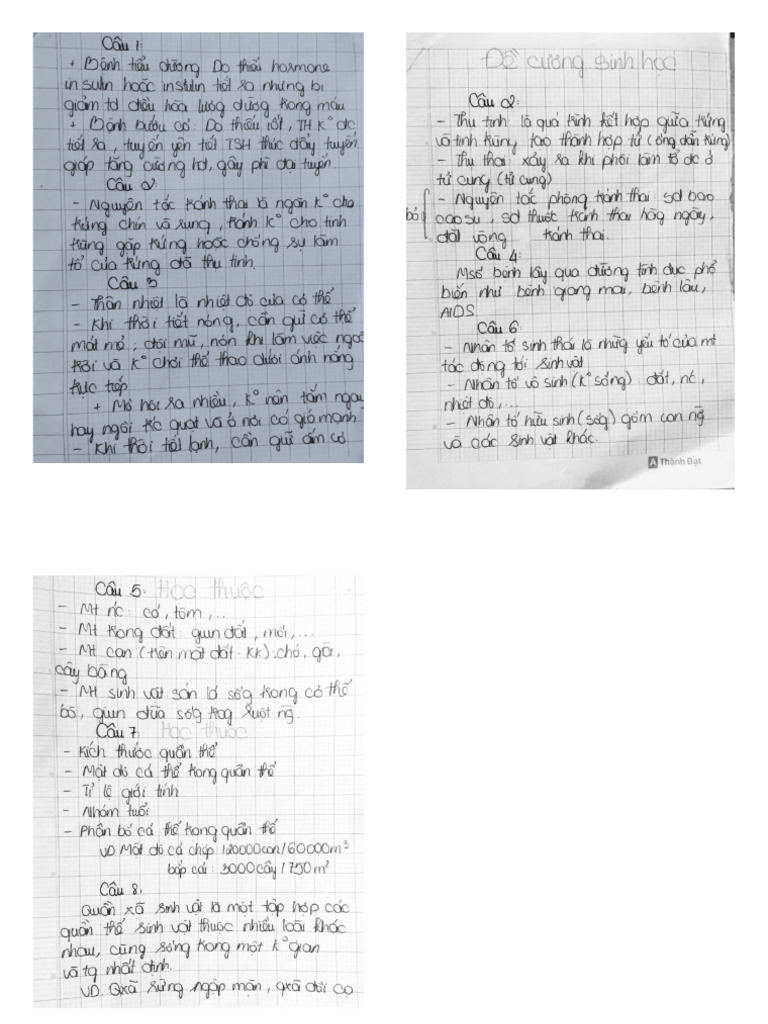 Câu 1:
+ Bệnh tiểu đường Do thiếu hormone
insulin hoặc instulin tiết ra nhưng bị
giảm td điều hòa lượng đường trong máu
+ Bệnh bướu cổ: Do thiếu iốt, TH k° đc
tiết ra, tuyến yên tiết TSH thúc đẩy tuyến
giáp tăng cường hđ, gây phì đại tuyến.
Câu 2
- Nguyên tắc tránh thai là ngăn k° cho
trứng chín và rụng, tránh k° cho tinh
trùng gặp trứng hoặc chống sự làm
tổ của trứng đã thụ tinh.
Câu 3
- Thân nhiệt là nhiệt độ của cơ thể
- Khi thời tiết nóng, cần giữ cơ thể
mát mẻ, đội mũ, nón khi làm việc ngoài
trời và k° chơi thể thao dưới ánh nắng
trực tiếp
+ Mồ hôi ra nhiều, k° nên tắm ngay
hay ngồi trc quạt và ở nơi có gió mạnh
- Khi thời tiết lạnh, cần giữ ấm cơ
Đề cương sinh học
Câu 2:
- Thụ tinh: là quá trình kết hợp giữa trứng
và tinh trùng tạo thành hợp tử (ống dẫn trứng)
- Thụ thai xảy ra khi phôi làm tổ đc ở
tử cung (tử cung)
bỏ - Nguyên tắc phòng tránh thai: sd bao
cao su, sd thuốc tránh thai hằng ngày,
đặt vòng tránh thai.
Câu 4:
Msố bệnh lây qua đường tình dục phổ
biến như bệnh giang mai, bệnh lậu,
AIDS
Câu 6:
- Nhân tố sinh thái là những yếu tố của mt
tác động tới sinh vật
- Nhân tố vô sinh (k° sống) đất, nc,
nhiệt độ,...
- Nhân tố hữu sinh (sống) gồm con ng
và các sinh vật khác.
A Thành Đạt
Câu 5: Học thuộc
- Mt nc: cá, tôm,...
- Mt trong đất: giun đất, mối,...
- Mt cạn (trên mặt đất - kk): chó, gà,
cây bàng
- Mt sinh vật sán lá sống trong cơ thể
bò, giun đũa sống trog ruột ng.
Câu 7: Học thuộc
- Kích thước quần thể
- Mật độ cá thể trong quần thể
- Tỉ lệ giới tính
- Nhóm tuổi
- Phân bố cá thể trong quần thể
VD Mật độ cá chép 120000con/60000m³
bắp cải: 3000cây/750m²
Câu 8:
Quần xã sinh vật là một tập hợp các
quần thể sinh vật thuộc nhiều loài khác
nhau, cùng sống trong một k° gian
và tg nhất định.
VD. Qxã rừng ngập mặn, qxã đồi cọ